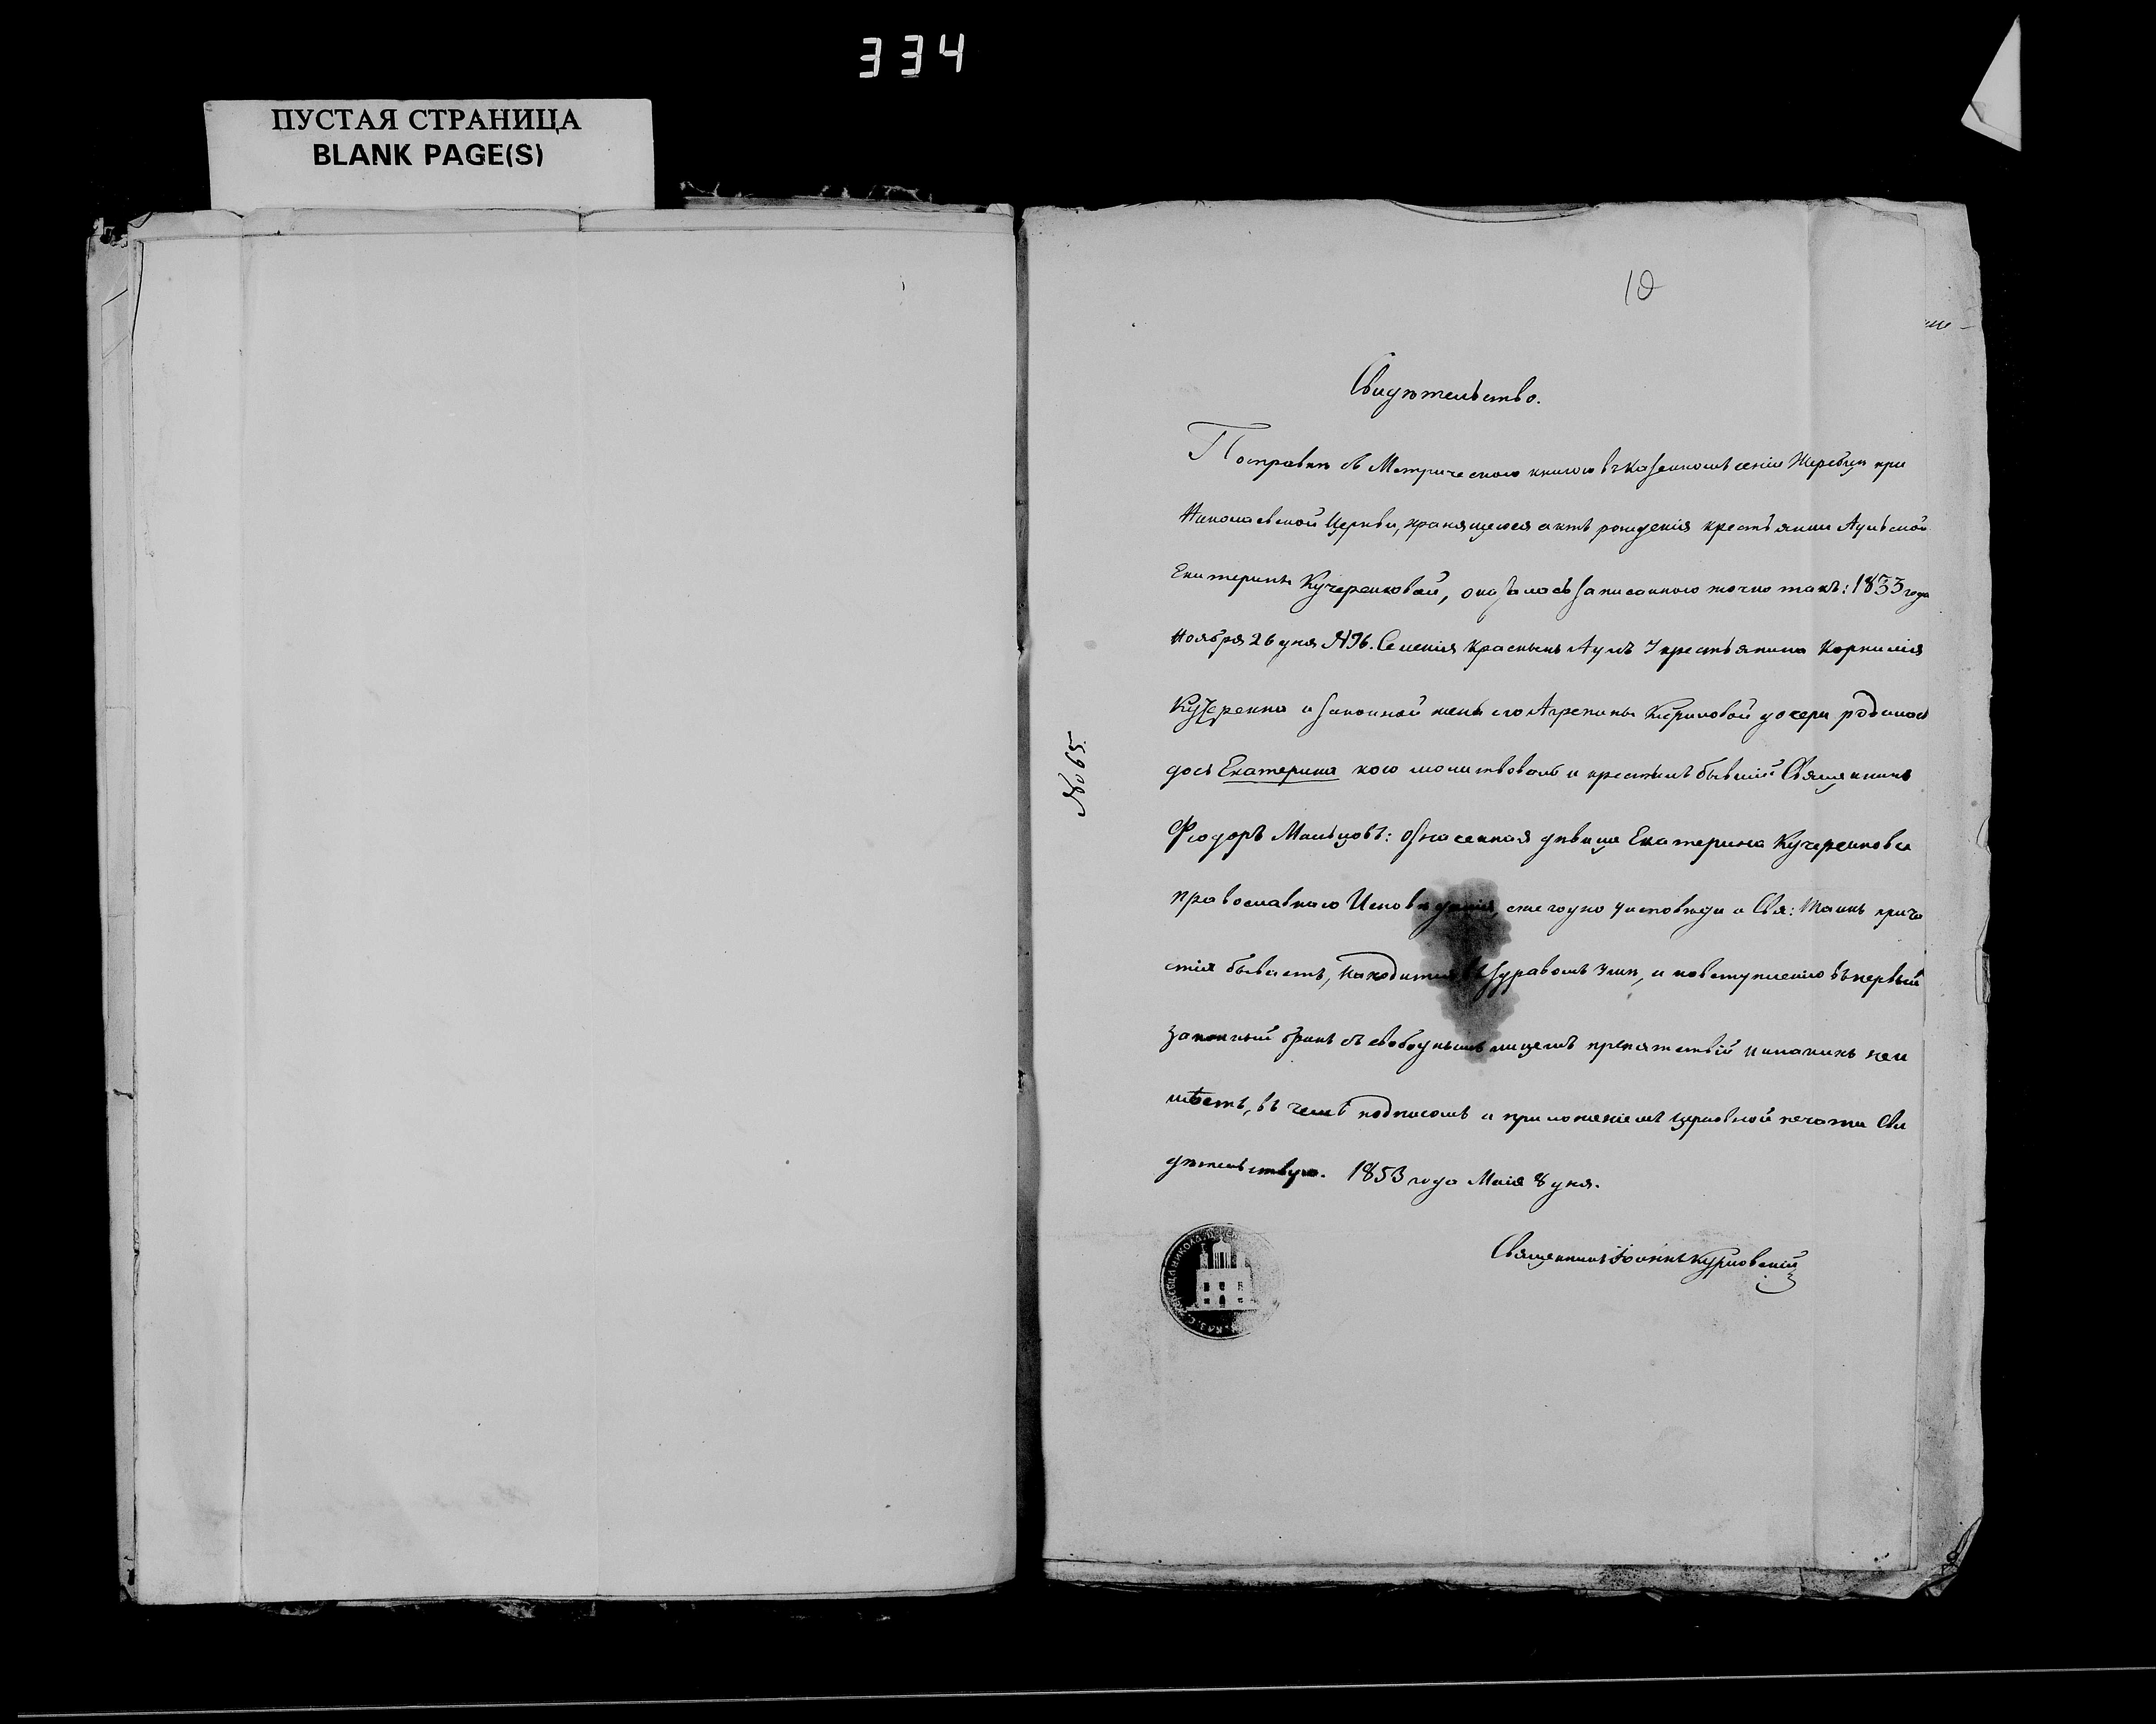 334
ПУСТАЯ СТРАНИЦА
BLANK PAGE(S)
10
Свидѣтельство.
По справкѣ съ Метрическою книгою въ казенномъ селеніи Жеребцѣ при
Николаевской Церкви, хранящеюся актъ рожденія крестьянки Аульской
Екатерины Кучеренковой, оказалось записанною точно такъ: 1833 года
Ноября 26 дня №76. Селенія Красныхъ Аулъ У крестьянина Корнилія
Кучеренка и законной жены его Агрепины Кириловой дочери родилась
дочь Екатерина кою молитвовалъ и крестилъ бывшій Священникъ
Феодоръ Мальцовъ: Означенная дѣвица Екатерина Кучеренкова
православнаго Исповѣданія, ежегодно у исповѣди и Свя: Таинъ прича
стія бываетъ, находится въ здравомъ умѣ, и ко вступленію въ первый
законный бракъ съ свободнымъ лицемъ препятствій никакихъ неи
мѣетъ, въ чемъ подписомъ и приложеніемъ церковной печати Сви
дѣтельствую. 1853 года Маія 8 дня.
№ 65.
Священникъ Іоаннъ Курловскій